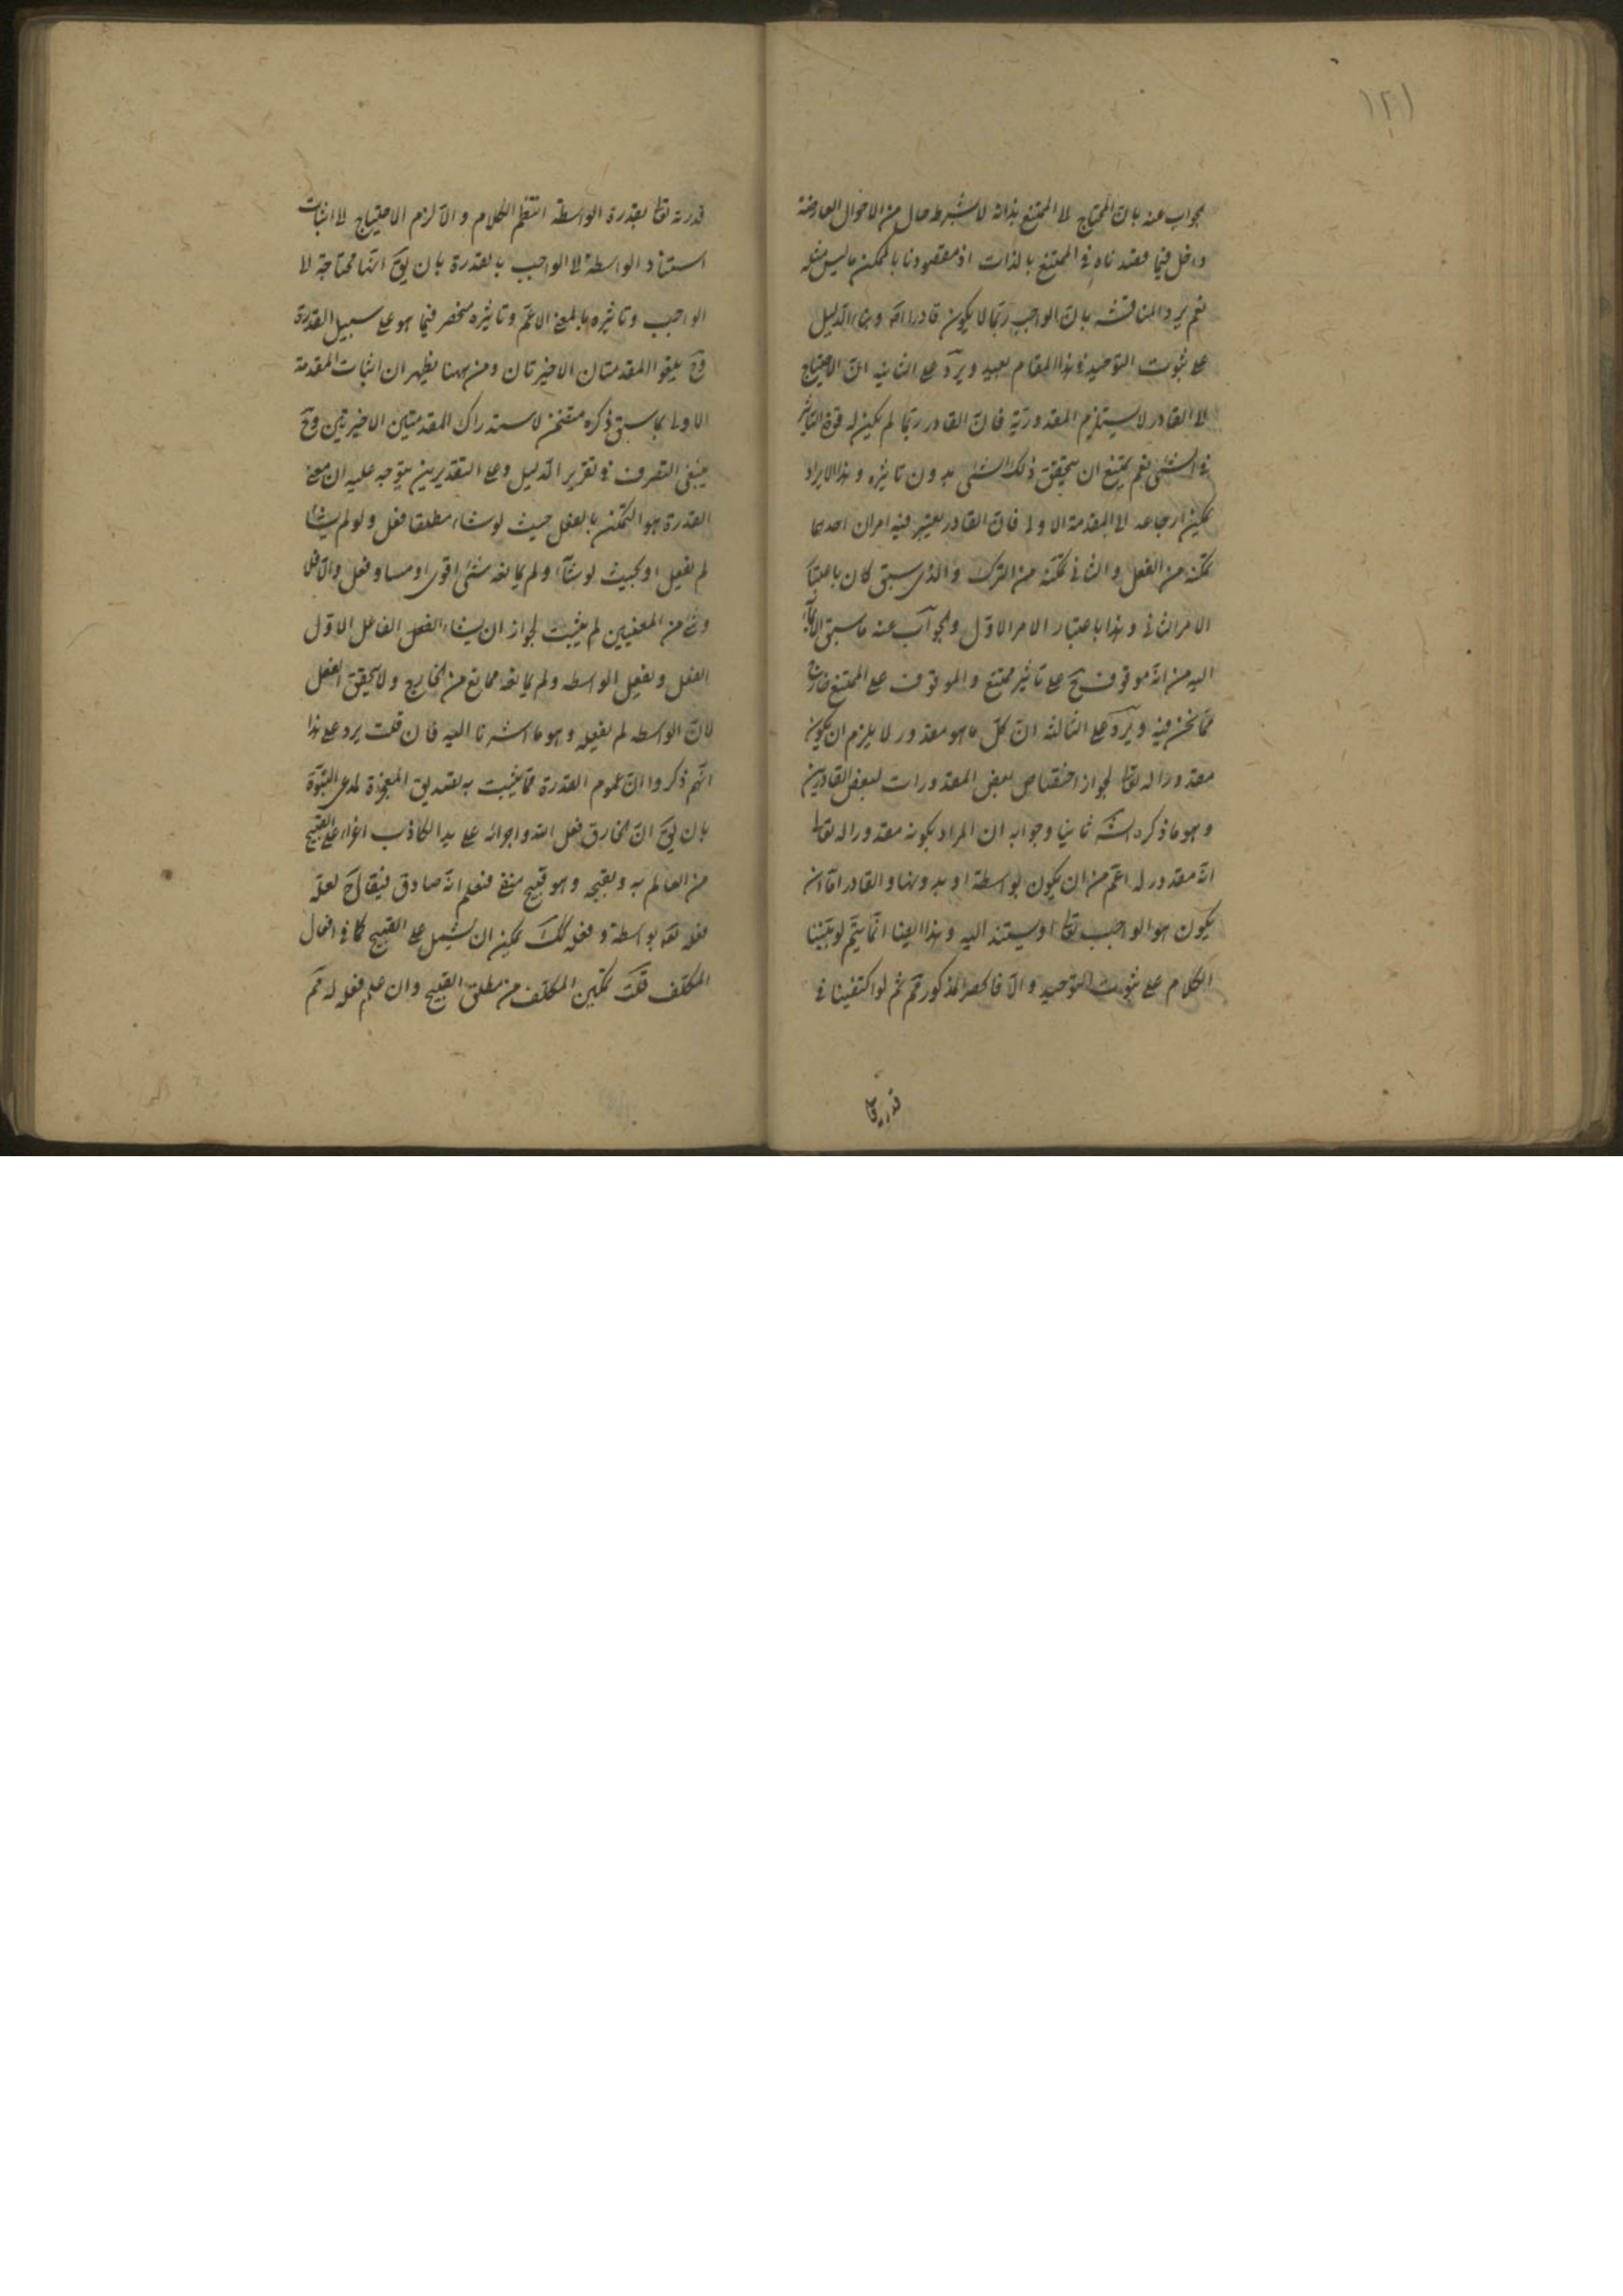 ١٢١
بجواب عنه بان المحتاج لا الممتنع بذاته لا بشرط حال من الاحوال العارضة
داخل فيما قصدناه في الممتنع بالذات اذ مقصودنا بالممكن ما ليس مثله
نعم يرد المناقشة بان الواجب ربما لا يكون قادرا اصلا وبناء الدليل
على ثبوت التوحيد في هذا المقام بعيد ويرد على الثانية ان الاحتياج
لا القادر لا يستلزم المقدورية فان القادر ربما لم يكن له قوة التأثير
في الشئ نعم يمتنع ان يتحقق ذلك الشئ بدون تاثيره وهذا الايراد
يمكن ارجاعه الى المقدمة الاولى فان القادر يعتبر فيه امران احدهما
تمكنه من الفعل والثاني تمكنه من الترك والذي سبق كان باعتبار
الامر الثاني وهذا باعتبار الامر الاول والجواب عنه ما سبق الايماء
اليه من انه موقوف ح على تاثير ممتنع والموقوف على الممتنع خارج
مما نحن فيه ويرد على الثالثة ان كل ما هو مقدور لا يلزم ان يكون
مقدورا له تعا لجواز اختصاص بعض المقدورات لبعض القادرين
وهو ما ذكره الش ثانيا وجوابه ان المراد بكونه مقدورا له تعا
انه مقدور له اعم من ان يكون بواسطة او بدونها والقادر اما ان
يكون هو الواجب تعا او يستند اليه وهذا ايضا انما يتم لو بنينا
الكلام على ثبوت التوحيد والا فالحصر المذكور مم ثم لو اكتفينا في
قدرته تعا
قدرته تعا بقدرة الواسطة انتظم الكلام والا لزم الاحتياج لا اثبات
استناد الواسطة لا الواجب بالقدرة بان يق انها محتاجة لا
الواجب وتاثيره بالمعنى الاعم وتاثيره منحصر فيما هو على سبيل القدرة
وح يلغو المقدمتان الاخيرتان ومن ههنا يظهر ان اثبات المقدمة
الاولى بما سبق ذكره متضمن لاستدراك المقدمتين الاخيرتين وح
ينبغي التصرف في تقرير الدليل وعلى التقديرين يتوجه عليه ان معنى
القدرة هو التمكن بالفعل حيث لو شاء مطلقا فعل ولو لم يشا
لم يفعل او بحيث لو شاء ولم يمانعه شئ اقوى او مساو فعل والا فلا
وشئ من المعنيين لم يثبت لجواز ان يشاء الفعل الفاعل الاول
الفعل ويفعل الواسطه ولم يمانعه ممانع من الخارج ولا يتحقق الفعل
لان الواسطه لم يفعله وهو ما اشرنا اليه فان قلت يرد على هذا
انهم ذكروا ان عموم القدرة مما يثبت به تصديق المعجزة لمدعى النبوة
بان يق ان الخارق فعل الله واجرائه على يد الكاذب اغراء على القبيح
من العالم به وبقبحه وهو قبيح منفى فنعلم انه صادق فيقال ح لعله
فعله تعا بواسطة وفعله كك يمكن ان يشمل على القبيح كما في افعال
المكلف قلت تمكين المكلف من مطلق القبيح وان علم فعله له مم